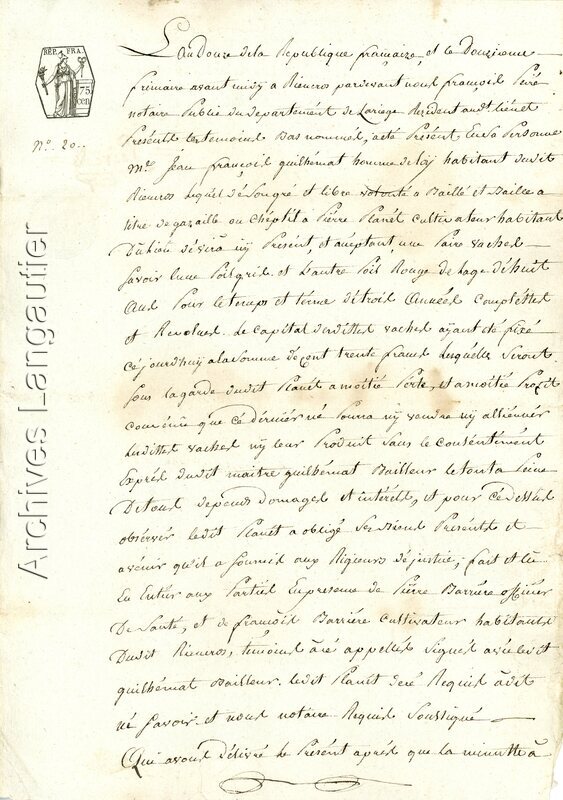 RÉP. FRA.
75
cen
N.º 20..
Archives Langautier
L'an Douze de la Republique francaize, et le Douzieme
frimaire avant midy a Rieucros pardevant nous françois
notaire Public du departement de Lariege Rezident audt
Présents les temoins Bas nommés, a été Présent En Sa Personne
Mr. Jean françois guilhemat homme de loy habitant dudit
Rieucros lequel dé Son gré et libre volonté a Baillé et Baille a
titre de gazaille ou chéptel a Pierre Planét cultivateur habitant
Du lieu dé icy Présent, et acceptant une Paire vaches
Savoir lune Poil gris, et L'autre Poil Rouge de lage dé huit
ans Pour le temps et terme dé trois Années Complettes
et Revolues. Le Capital desdittes vaches ayant été fixé
cé jourdhuy a la Somme dé cent trente francs lesquelles Seront
Sous la garde dudit Planét a moitié Perte, et a moitié Profit
convenu que cé dernier né Pourra ny vendre ny alliénner
lesdittes vaches ny leur Produit Sans le consentément
Exprès dudit maitre guilhémat Bailleur le tout a Peine
De tous depens domages et intérêts, et pour cé dessus
observer ledit Planét a obligé Ses Biens Présents et
avenir qu'il a Soumis aux Rigueurs dé justice; fait et lu
En Entier aux Parties En presence de Pierre Barrière officier
De Santé, et de françois Barrière cultivateur habitants
Dudit Rieucros, témoins à cé appellés Signés avec ledit
guilhémat Bailleur. ledit Planét dé cé Réquis à dit
né Savoir. et nous notaire Réquis Soussigné
Qui avons Délivré le Présent après que la minutte à